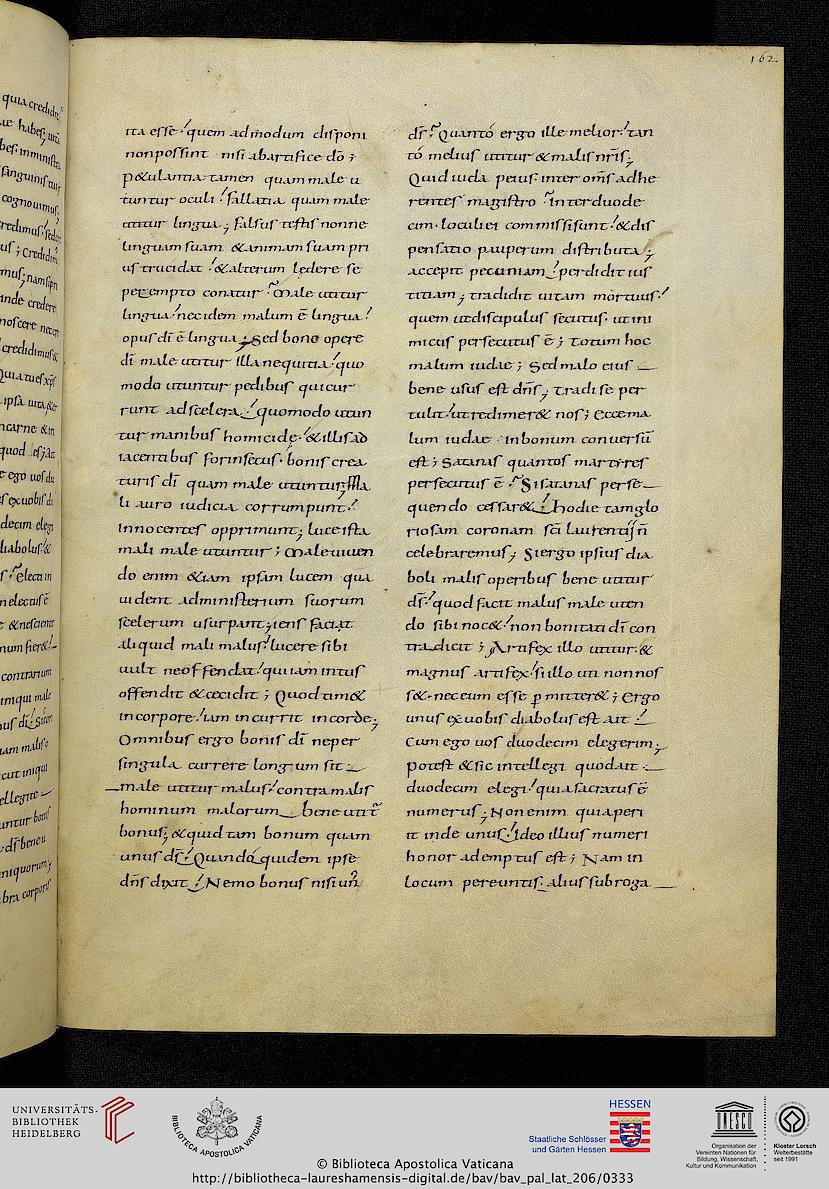 162
ita esse quem ad modum disponi
non possint nisi ab artifice dõ;
p&ulantia tamen quam male u
tuntur oculi fallatia quam male
utitur lingua; falsus testis nonne
linguam suam & animam suam pri
us trucidat & alterum lędere se
perempto conatur Male utitur
lingua nec idem malum ẽ lingua
opus dĩ ẽ lingua; Sed bono opere
dĩ male utitur illa nequitia quo
modo utuntur pedibus qui cur
runt ad scelera quomodo utun
tur manibus homicide & illis ad
iacentibus forinsecus bonis crea
turis dĩ quam male utuntur; Ma
li auro iudicia corrumpunt
innocentes opprimunt; luce ista
mali male utuntur; Male viuen
do enim &iam ipsam lucem qua
uident administerium suorum
scelerum usurpant; iens faciat
aliquid mali malus lucere sibi
uult ne offendat qui iam intus
offendit & cecidit; Quod tim&
in corpore iam incurrit in corde;
Omnibus ergo bonis dĩ ne per
singula currere longum sit
male utitur malus contra malis
hominum malorum bene utit~
bonus; & quid tam bonum quam
unus ds̃ Quando quidem ipse
dñs dixit Nemo bonus nisi un
ds̃ Quantó ergo ille melior tan
tó melius utitur & malis nr̃is;
Quid iuda peius inter oms̃ adhe
rentes magistro inter duode
cim loculi ei commissi sunt & dis
pensatio pauperum distributa;
accepit pecuniam perdidit ius
titiam; tradidit uitam mortuus
quem ut discipulus secutus ut ini
micus persecutus ẽ; Totum hoc
malum iudae; Sed malo eius
bene usus est dñs; tradi se per
tulit ut redimer& nos; Ecce ma
lum iudae in bonum conuersũ
est; Satanas quantos martires
persecutus ẽ Si satanas perse
quendo cessar& hodie tam glo
riosam coronam sc̃i laurentii ñ
celebraremus; Si ergo ipsius dia
boli malis operibus bene utitur
ds̃ quod facit malus male uten
do sibi noc& non bonitati dĩ con
tradicit; Artifex illo utitur &
magnus artifex si illo uti non nos
s& nec eum esse p̱mitter&; Ergo
unus ex uobis diabolus est ait
Cum ego uos duodecim elegerim;
potest & sic intellegi quod ait
duodecim elegi quia sacratus ẽ
numerus; Non enim quia peri
it inde unus ideo illius numeri
honor ademptus est; Nam in
locum pereuntis alius subroga
UNIVERSITÄTS-
BIBLIOTHEK
HEIDELBERG
BIBLIOTHECA APOSTOLICA VATICANA
HESSEN
Staatliche Schlösser
und Gärten Hessen
UNESCO
Organisation der
Vereinten Nationen für
Bildung, Wissenschaft,
Kultur und Kommunikation
Kloster Lorsch
Welterbestätte
seit 1991
© Biblioteca Apostolica Vaticana
http://bibliotheca-laureshamensis-digital.de/bav/bav_pal_lat_206/0333